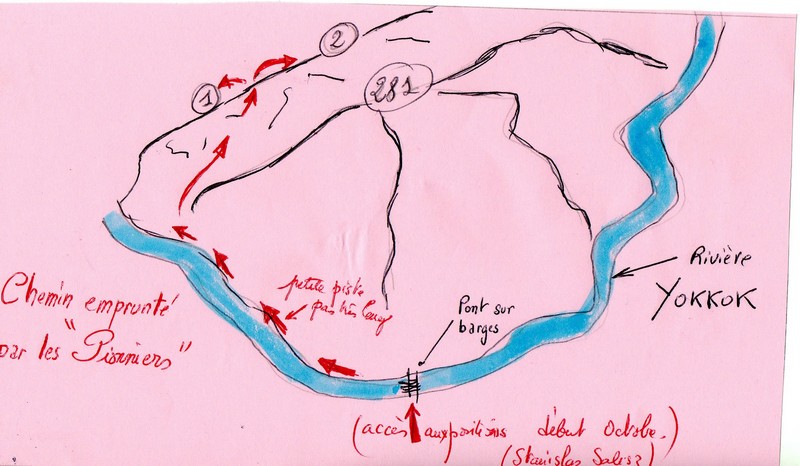 2
1
281
Rivière
YOKKOK
petite piste
pas très
Pont sur
barges
Chemin emprunté
par les "Pionniers"
(accès aux positions début Octobre.)
(Stanislas